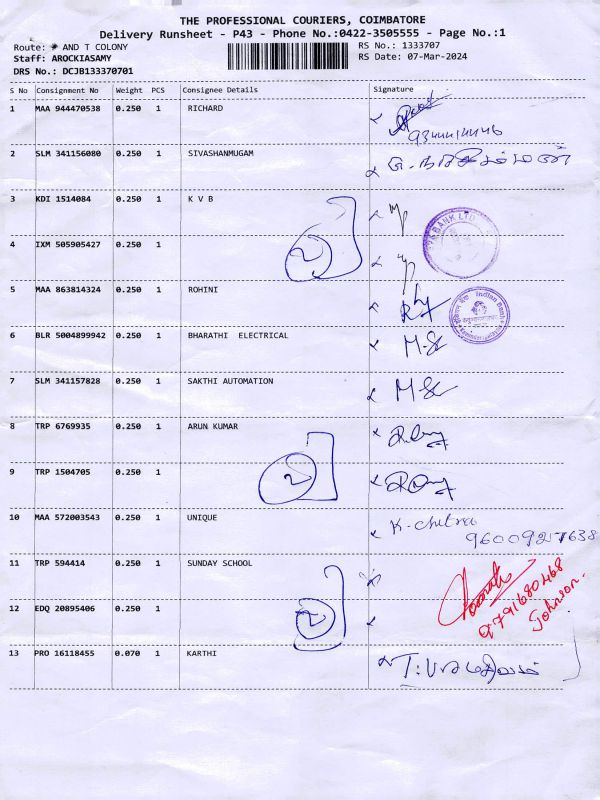 THE PROFESSIONAL COURIERS, COIMBATORE
Delivery Runsheet - P43 - Phone No.:0422-3505555 - Page No.:1
Route: # AND T COLONY
RS No.: 1333707
Staff: AROCKIASAMY
RS Date: 07-Mar-2024
DRS No.: DCJB133370701
S No Consignment No Weight PCS Consignee Details Signature
1 MAA 944470538 0.250 1 RICHARD
9344414446
2 SLM 341156080 0.250 1 SIVASHANMUGAM
3 KDI 1514084 0.250 1 K V B
BANK LTD
2
4 IXM 505905427 0.250 1
5 MAA 863814324 0.250 1 ROHINI
Indian Bank
6 BLR 5004899942 0.250 1 BHARATHI ELECTRICAL
7 SLM 341157828 0.250 1 SAKTHI AUTOMATION
8 TRP 6769935 0.250 1 ARUN KUMAR
2
9 TRP 1504705 0.250 1
10 MAA 572003543 0.250 1 UNIQUE K. chitra
9600927638
11 TRP 594414 0.250 1 SUNDAY SCHOOL
9791680468
Johnson.
2
12 EDQ 20895406 0.250 1
13 PRO 16118455 0.070 1 KARTHI